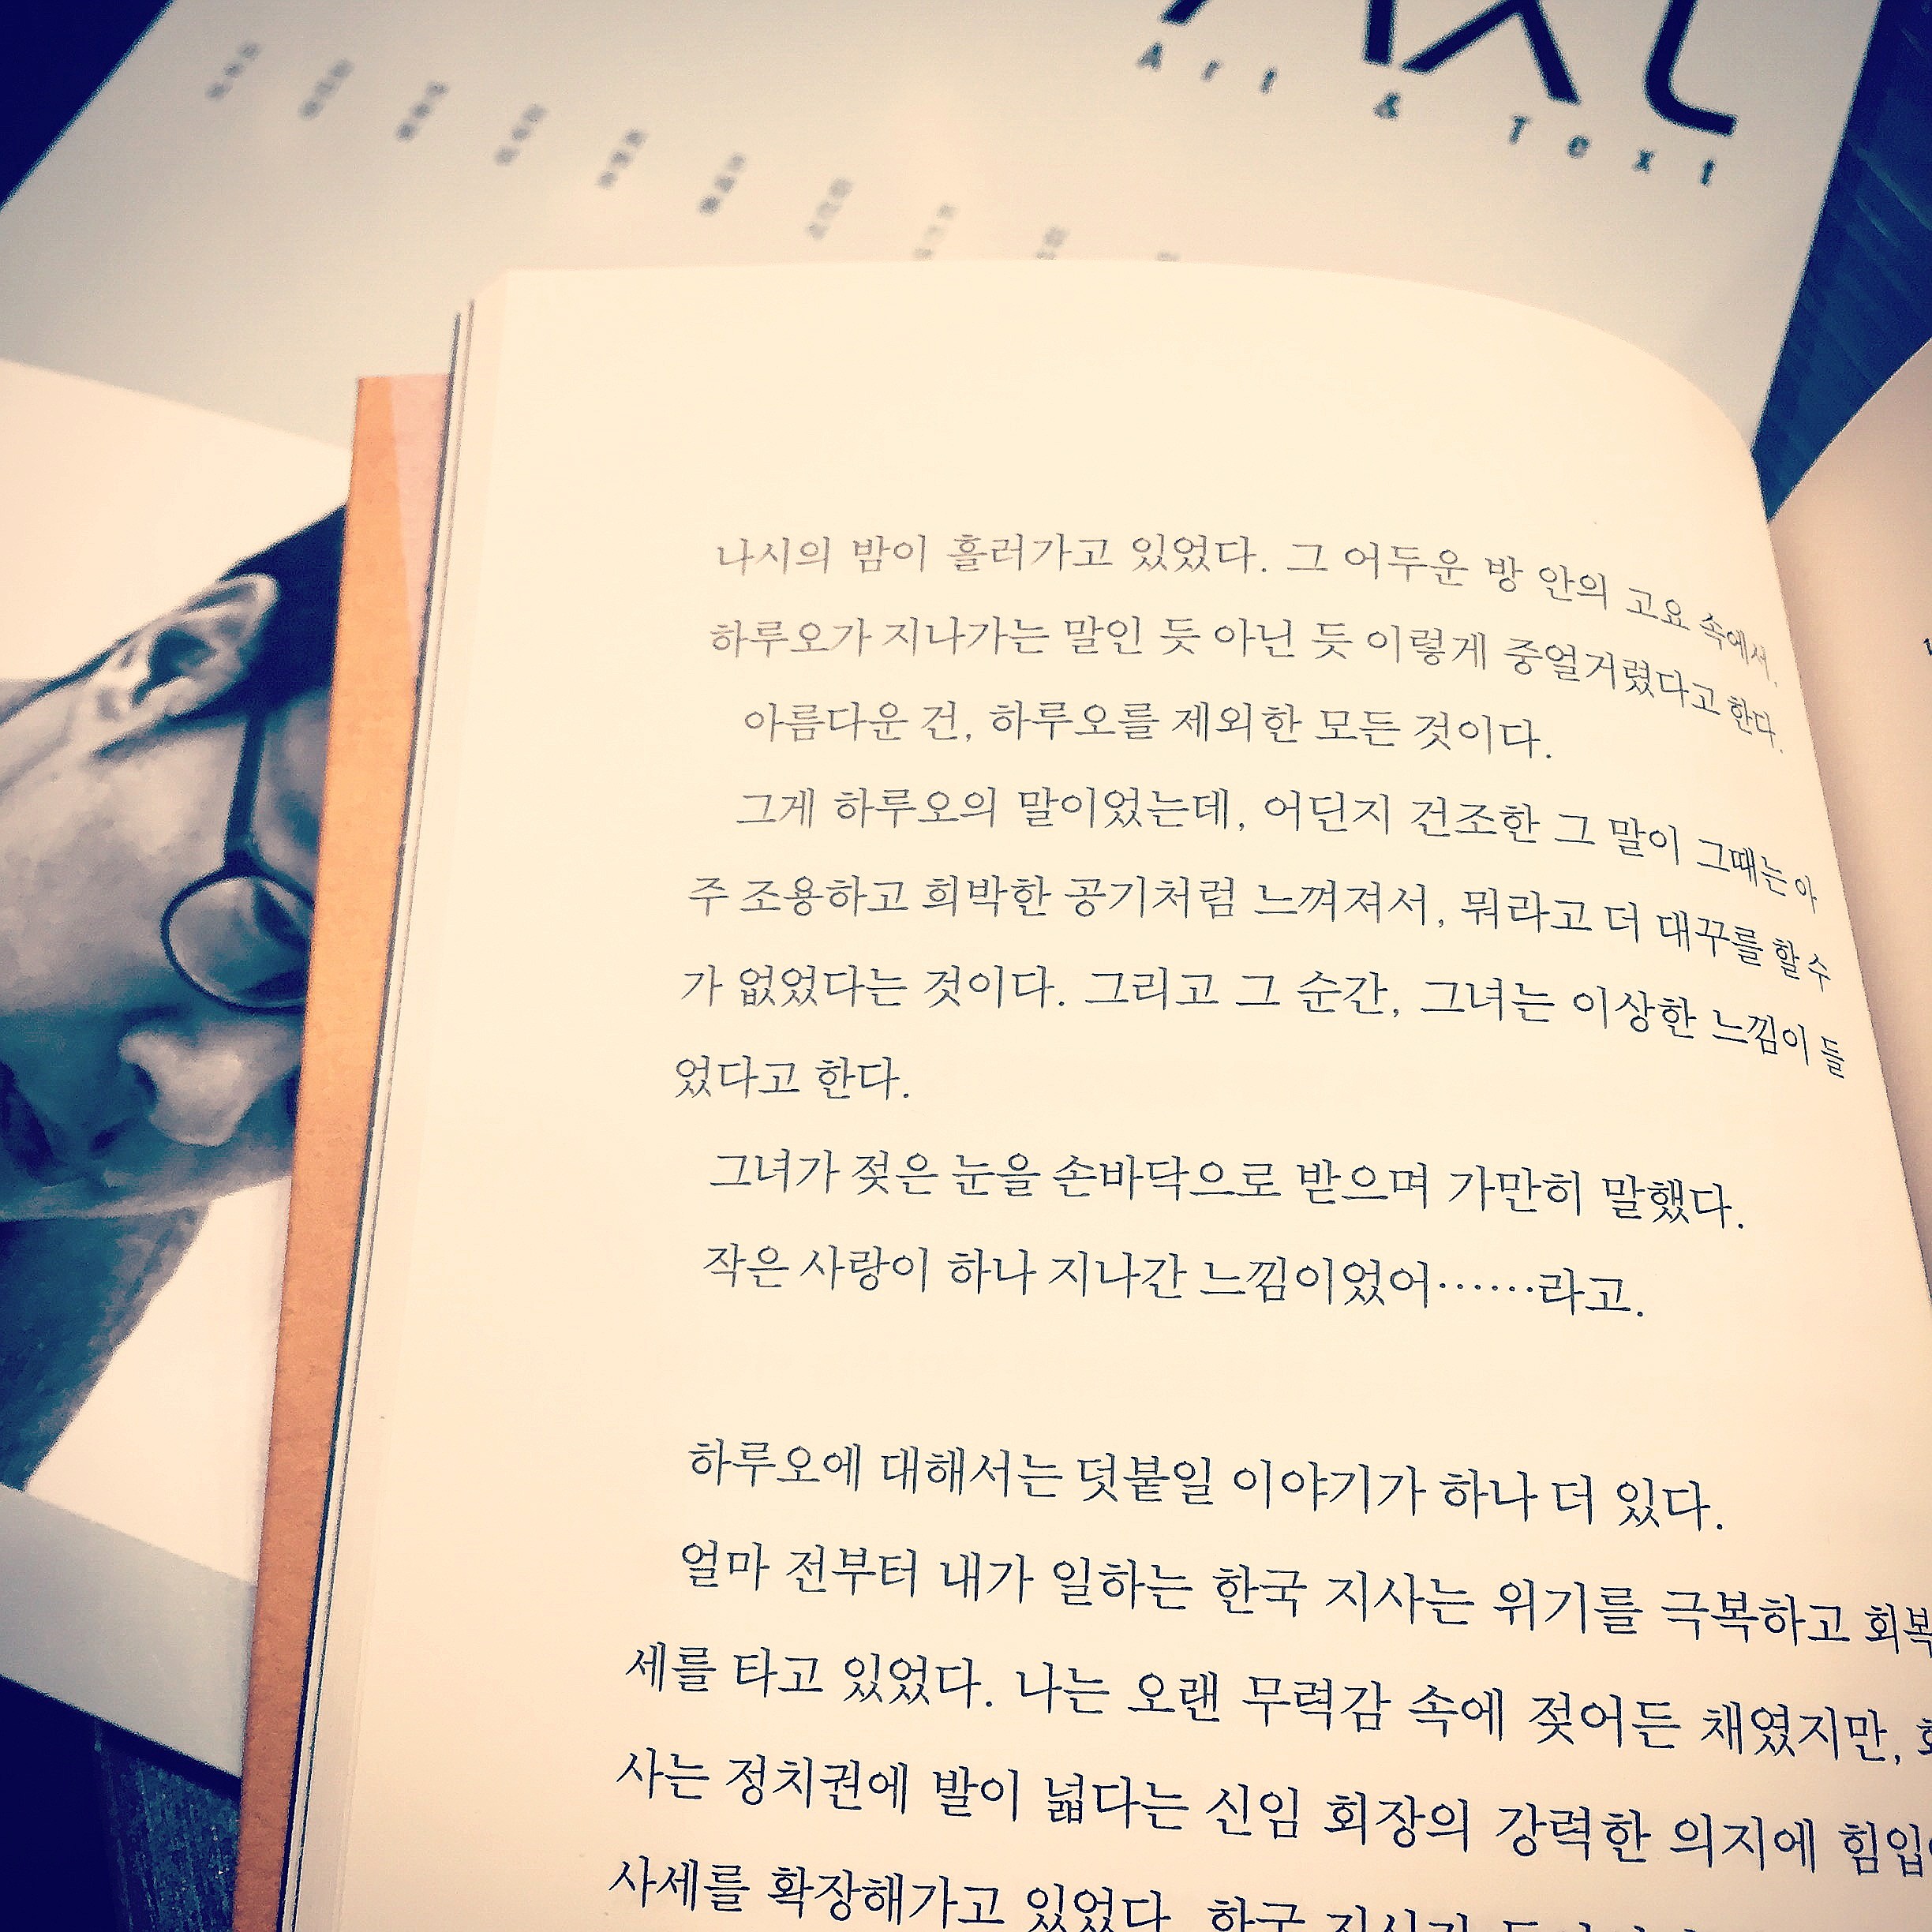 Art & Text
나시의 밤이 흘러가고 있었다. 그 어두운 방 안의 고요 속에서,
하루오가 지나가는 말인 듯 아닌 듯 이렇게 중얼거렸다고 한다.
아름다운 건, 하루오를 제외한 모든 것이다.
그게 하루오의 말이었는데, 어딘지 건조한 그 말이 그때는 아
주 조용하고 희박한 공기처럼 느껴져서, 뭐라고 더 대꾸를 할 수
가 없었다는 것이다. 그리고 그 순간, 그녀는 이상한 느낌이 들
었다고 한다.
그녀가 젖은 눈을 손바닥으로 받으며 가만히 말했다.
작은 사랑이 하나 지나간 느낌이었어……라고.
하루오에 대해서는 덧붙일 이야기가 하나 더 있다.
얼마 전부터 내가 일하는 한국 지사는 위기를 극복하고 회복
세를 타고 있었다. 나는 오랜 무력감 속에 젖어든 채였지만,
사는 정치권에 발이 넓다는 신임 회장의 강력한 의지에 힘입
사세를 확장해가고 있었다. 한국